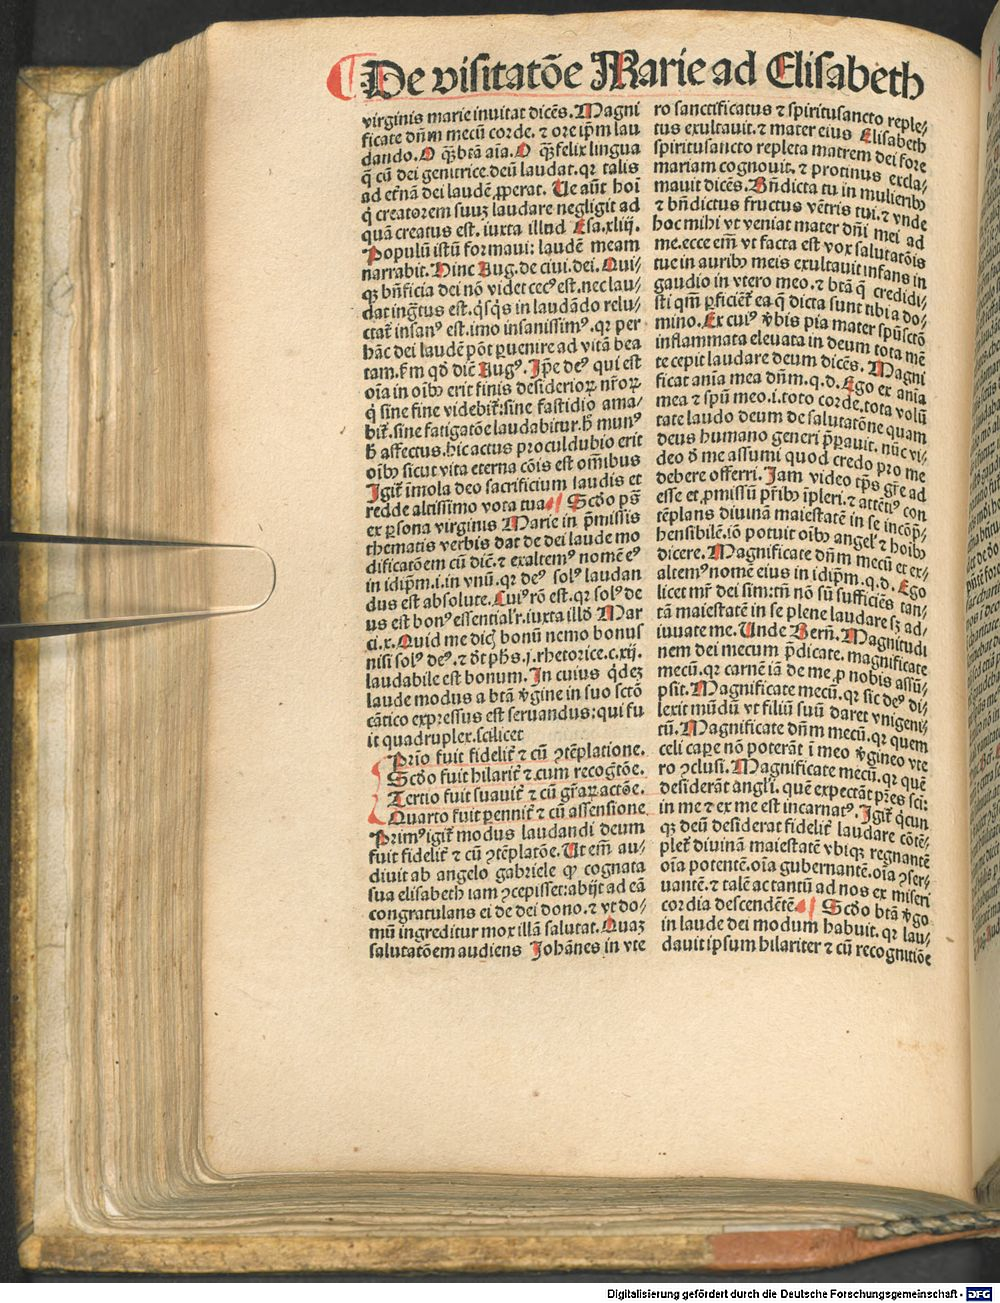 De visitatõe Marie ad Elisabeth
virginis marie inuitat dicẽs. Magni
ficate dñm mecũ corde. ⁊ ore ip̃m lau
dando. O q̃bt̃a aĩa. O q̃felix lingua
q̃ cũ dei genitrice deũ laudat. qꝛ talis
ad et̃nã dei laudẽ ꝓperat. Ue aũt hoĩ
q̇ creatorem suuȝ laudare negligit ad
quã creatus est. iuxta illud Esa.xliij.
Populũ istũ formaui: laudẽ meam
narrabit. Hinc Aug. de ciui. dei. Qui-
qȝ bñficia dei nõ videt cecꝰ est. nec lau-
dat ingr̃tus est. q̇sq̇s in laudãdo relu-
ctat̃ insanꝰ est. imo insanissimꝰ. qꝛ per
hãc dei laudẽ põt ꝑuenire ad vitã bea
tam. ẜm qđ dič Augꝰ. Ip̃e deꝰ qui est
oĩa in oĩbꝰ erit finis desiderioꝝ nr̃oꝝ
q̇ sine fine videbit̃: sine fastidio ama-
bit̃. sine fatigatõe laudabitur. h̃ munꝰ
h̃ affectus. hic actus proculdubio erit
oĩbꝰ sicut vita eterna cõis est om̃ibus
Igit̃ im̃ola deo sacrificium laudis et
redde altissimo vota tua Scđo pꝫ
ex ꝑsona virginis Marie in p̃missis
thematis verbis dat de dei laude mo
dificatõem cũ dič. ⁊ exaltemꝰ nomẽ eꝰ
in idip̃m. i. in vnũ. qꝛ deꝰ solꝰ laudan
dus est absolute. Cuiꝰ rõ est. qꝛ solꝰ de
us est bonꝰ essential'r. iuxta illđ Mar
ci.x. Quid me dicȝ bonũ nemo bonus
nisi solꝰ deꝰ. ⁊ đt ph̃s. j. rhetorice. c. xij.
laudabile est bonum. In cuius q̇deȝ
laude modus a bt̃a v̾gine in suo sctõ
cãtico expressus est seruandus: qui fu
it quadruplex. scilicet
Prĩo fuit fidelit̃ ⁊ cũ ꝯtẽplatione.
Scđo fuit hilarit̃ ⁊ cum recogtõe.
Tertio fuit suauit̃ ⁊ cũ gr̃aꝝ actõe.
Quarto fuit ꝑennit̃ ⁊ cũ assensione
Primꝰ igit̃ modus laudandi deum
fuit fidelit̃ ⁊ cũ ꝯtẽplatõe. Ut em̃ au-
diuit ab angelo gabriele ꝙ cognata
sua elisabeth iam ꝯcepisset: abijt ad eã
congratulans ei de dei dono. ⁊ vt do-
mũ ingreditur mox illã salutat. Quaȝ
salutatõem audiens Johãnes in vte
ro sanctificatus ⁊ spiritusancto reple-
tus exultauit. ⁊ mater eius Elisabeth
spiritusancto repleta matrem dei fore
mariam cognouit. ⁊ protinus excla-
mauit dicẽs. Bñdicta tu in mulieribꝰ
⁊ bñdictus fructus vẽtris tui. ⁊ vnde
hoc mihi vt veniat mater dñi mei ad
me. ecce em̃ vt facta est vox salutatõis
tue in auribꝰ meis exultauit infans in
gaudio in vtero meo. ⁊ bt̃a q̃ credidi-
sti qm̃ ꝑficiẽt̃ ea q̃ dicta sunt tibi a do-
mino. Ex cuiꝰ v̾bis pia mater spũsctõ
inflammata eleuata in deum tota mẽ
te cepit laudare deum dicẽs. Magni
ficat anĩa mea dñm. q. d. Ego ex anĩa
mea ⁊ spũ meo. i. toto corde. tota volũ
tate laudo deum de salutatõne quam
deus humano generi p̃parauit. nũc vi-
deo đ me assumi quod credo pro me
debere offerri. Jam video tp̃s gr̃e ad
esse et ꝓmissũ pr̃ibꝰ ĩpleri. ⁊ attẽtiꝰ con
tẽplans diuinã maiestatẽ in se incõp̃-
hensibilẽ. iõ potuit oĩbꝰ angel' ⁊ hoĩbꝰ
dicere. Magnificate dñm mecũ et ex-
altemꝰ nomẽ eius in idip̃m. q. d. Ego
licet mr̃ dei sim: tñ nõ sũ sufficiẽs tan-
tã maiestatẽ in se plene laudare sȝ ad-
iuuate me. Unde Bern̄. Magnitudi
nem dei mecum p̃dicate. magnificate
mecũ. qꝛ carnẽ iã de me ꝓ nobis assũ-
psit. Magnificate mecũ. qꝛ sic deꝰ di-
lexit mũdũ vt filiũ suũ daret vnigeni-
tũ. Magnificate dñm mecũ. qꝛ quem
celi capere nõ poterãt ĩ meo v̾gineo vte
ro ꝯclusi. Magnificate mecũ. qꝛ quẽ
desiderãt angl'i. quẽ expectãt pr̃es sci:
in me ⁊ ex me est incarnatꝰ. Igit̃ q̇cun
qȝ deũ desiderat fidelit̃ laudare cõtẽ-
plet̃ diuinã maiestatẽ vbiqȝ regnantẽ
oĩa potentẽ. oĩa gubernantẽ. oĩa ꝯser-
uantẽ. ⁊ talẽ ac tantũ ad nos ex miseri
cordia descendẽtẽ Scđo bt̃a v̾go
in laude dei modum habuit. qꝛ lau-
dauit ipsum hilariter ⁊ cũ recognitiõe
Digitalisierung gefördert durch die Deutsche Forschungsgemeinschaft - DFG